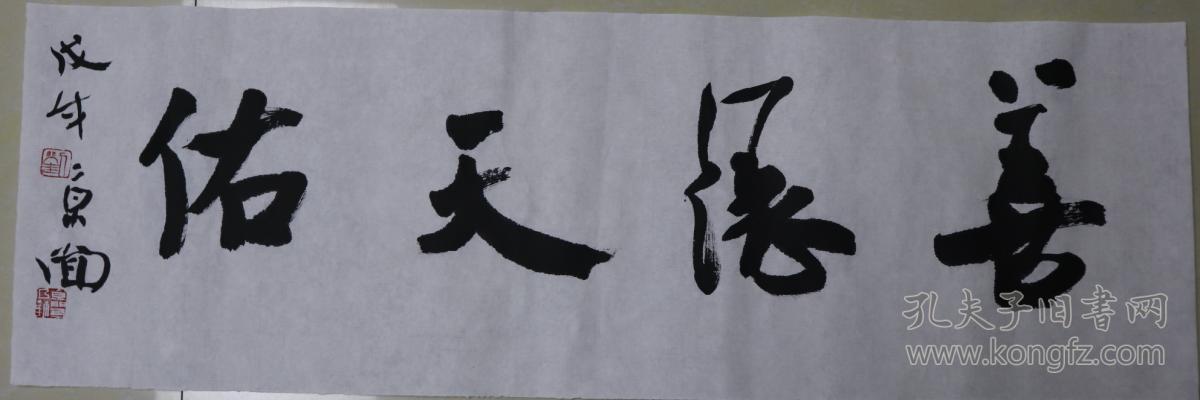 善愿天佑
孔夫子旧书网
www.kongfz.com